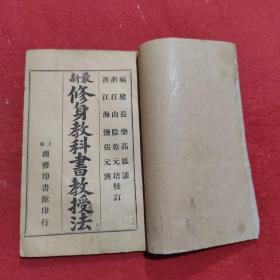 福建長樂高鳳謙
浙江山陰蔡元培校訂
浙江海鹽張元濟
最新
修身教科書教授法
上海
商務印書館印行